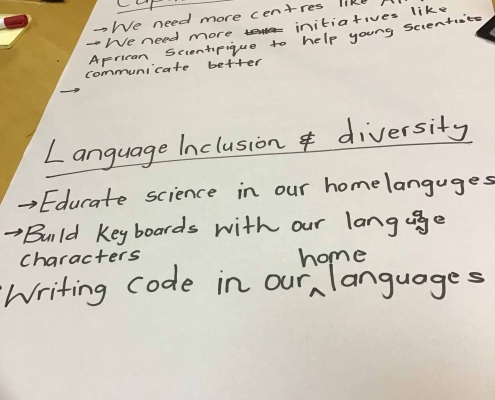 →We need more centres like
→We need more initiatives like
African Scientifique to help young Scientists
communicate better
→
Language Inclusion & diversity
→Educate science in our homelanguges
→Build Keyboards with our language
characters
Writing code in our home languages